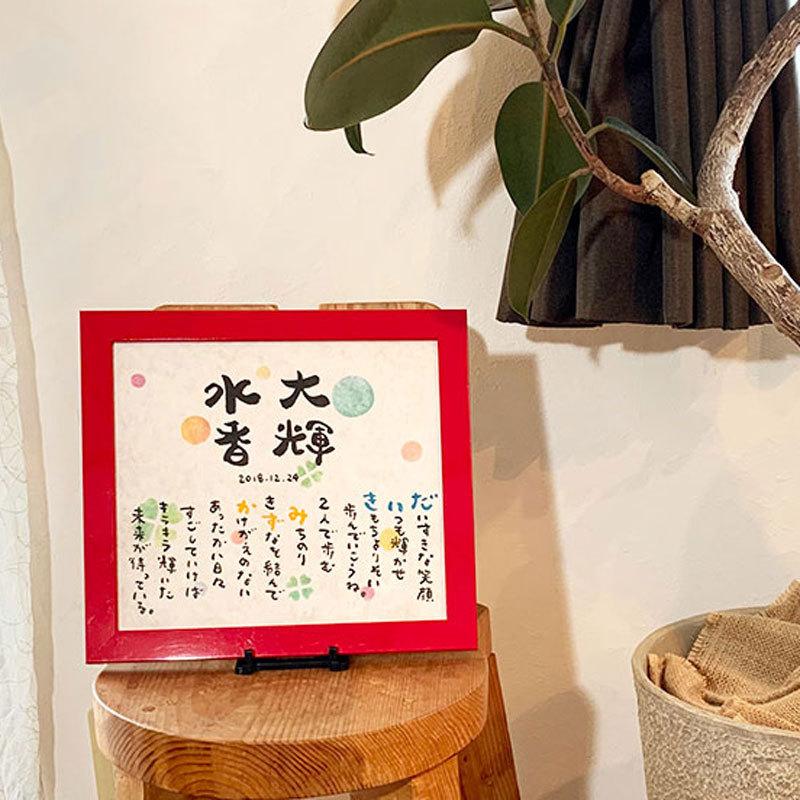 大輝
水香
2018.12.24
だいすきな笑顔
いつも輝かせ
きもちよりそい
歩んでいこうね。
2人で歩む
みちのり
きずなを結んで
かけがえのない
あったかい日々
すごしていけば
キラキラ輝いた
未来が待っている。